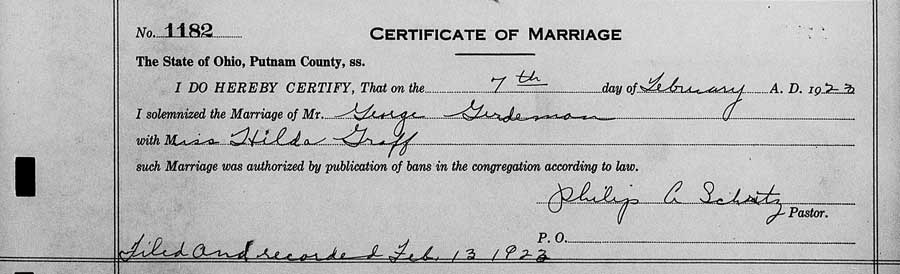 No. 1182 CERTIFICATE OF MARRIAGE
The State of Ohio, Putnam County, ss.
I DO HEREBY CERTIFY, That on the 7th day of February A. D. 1923
I solemnized the Marriage of Mr. George Gerdeman
with Miss Hilda Graff
such Marriage was authorized by publication of bans in the congregation according to law.
Philip A Schritz
Pastor.
P. O.
Filed and recorded Feb. 13 1923